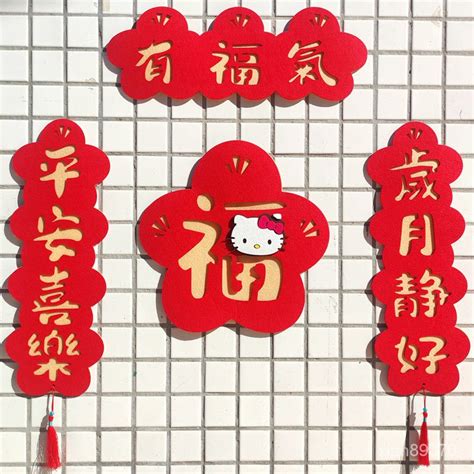 有福氣
歲月靜好
福
平安喜樂